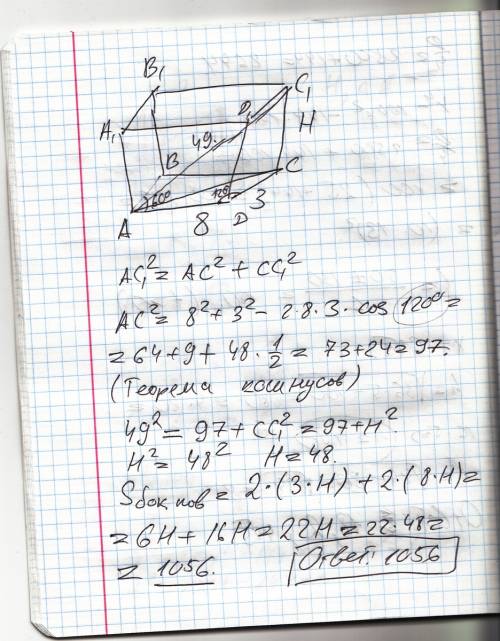 B₁
C₁
A₁
D₁
H
49
B
C
60°
120°
A
8
D
3
AC₁² = AC² + CC₁²
AC² = 8² + 3² - 2·8·3·cos 120° =
= 64 + 9 + 48 · 1/2 = 73 + 24 = 97.
(Теорема косинусов)
49² = 97 + CC₁² = 97 + H².
H² = 48² H = 48.
Sбок.пов = 2·(3·H) + 2·(8·H) =
= 6H + 16H = 22H = 22·48 =
= 1056. Ответ: 1056